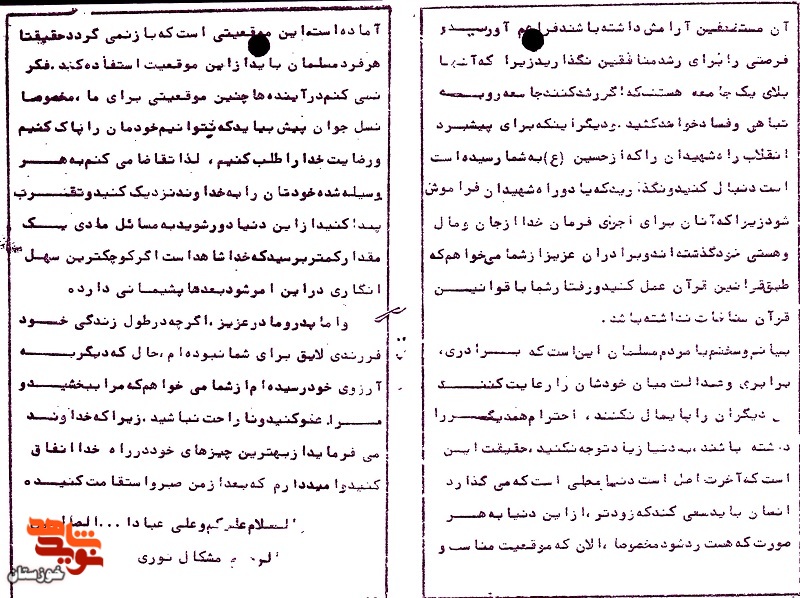 آن مستضعفین آرامش داشته باشند فراهم آورسید و
فرصتی را برای رشد منافقین نگذارید زیرا که آنها
بلای یک جامعه هستند که اگر رشد کنند جامعه رو به
تباهی و فساد خواهد کشید . و دیگر اینکه برای پیشبرد
انقلاب راه شهیدان را که از حسین (ع) به شما رسیده است
است دنبال کنید و نگذارید که یاد و راه شهیدان فراموش
شود زیرا که آنان برای اجرای فرمان خدا از جان و مال
و هستی خود گذشته اند و برادران عزیز از شما می خواهم که
طبق قوانین قرآن عمل کنید و رفتار شما با قوانین
قرآن منافات نداشته باشد .
پیام و سخنم با مردم مسلمان این است که برادری،
برابری و عدالت میان خودشان را رعایت کنند
دیگران را پایمال نکنند ، احترام همدیگر را
داشته باشند ، به دنیا زیاد توجه نکنید ، حقیقت این
است که آخرت اصل است دنیا محلی است که می گذارد
انسان باید سعی کند که زودتر ، از این دنیا به هر
صورت که هست رد شود مخصوصا ، الان که موقعیت مناسب و
آماده است ، این موقعیتی است که باز نمی گردد حقیقتا
هر فرد مسلمان باید از این موقعیت استفاده کند . فکر
نمی کنم در آینده ها چنین موقعیتی برای ما ، مخصوصا
نسل جوان پیش بیاید که بتوانیم خودمان را پاک کنیم
و رضایت خدا را طلب کنیم ، لذا تقاضا می کنم به هر
وسیله شده خودتان را به خداوند نزدیک کنید و تقرب
پیدا کنید از این دنیا دور شوید به مسائل مادی یک
مقدار کمتر برسید که خدا شاهد است اگر کوچکترین سهل
انگاری در این امر شود بعدها پشیمانی دارد
و اما پدر و مادر عزیز ، اگر چه در طول زندگی خود
فرزندی لایق برای شما نبوده ام ، حال که دیگر به
آرزوی خود رسیده ام از شما می خواهم که مرا ببخشید و
مرا عفو کنید و ناراحت نباشید . زیرا که خداوند
می فرماید از بهترین چیزهای خود در راه خدا انفاق
کنید و امیددارم که بعد از من صبر و استقامت کنید
والسلام علیکم و علی عبادا... الصالحین
مشکال نوری
نوید شاهد
خوزستان